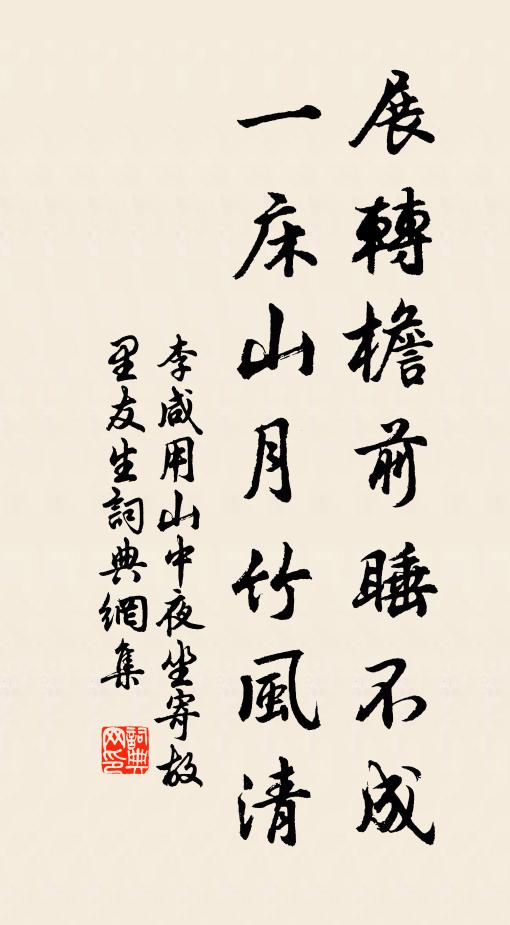 展轉檐前睡不成
一床山月竹風清
李咸用山中夜坐寄故
里友生詞典網集
詞典
网印